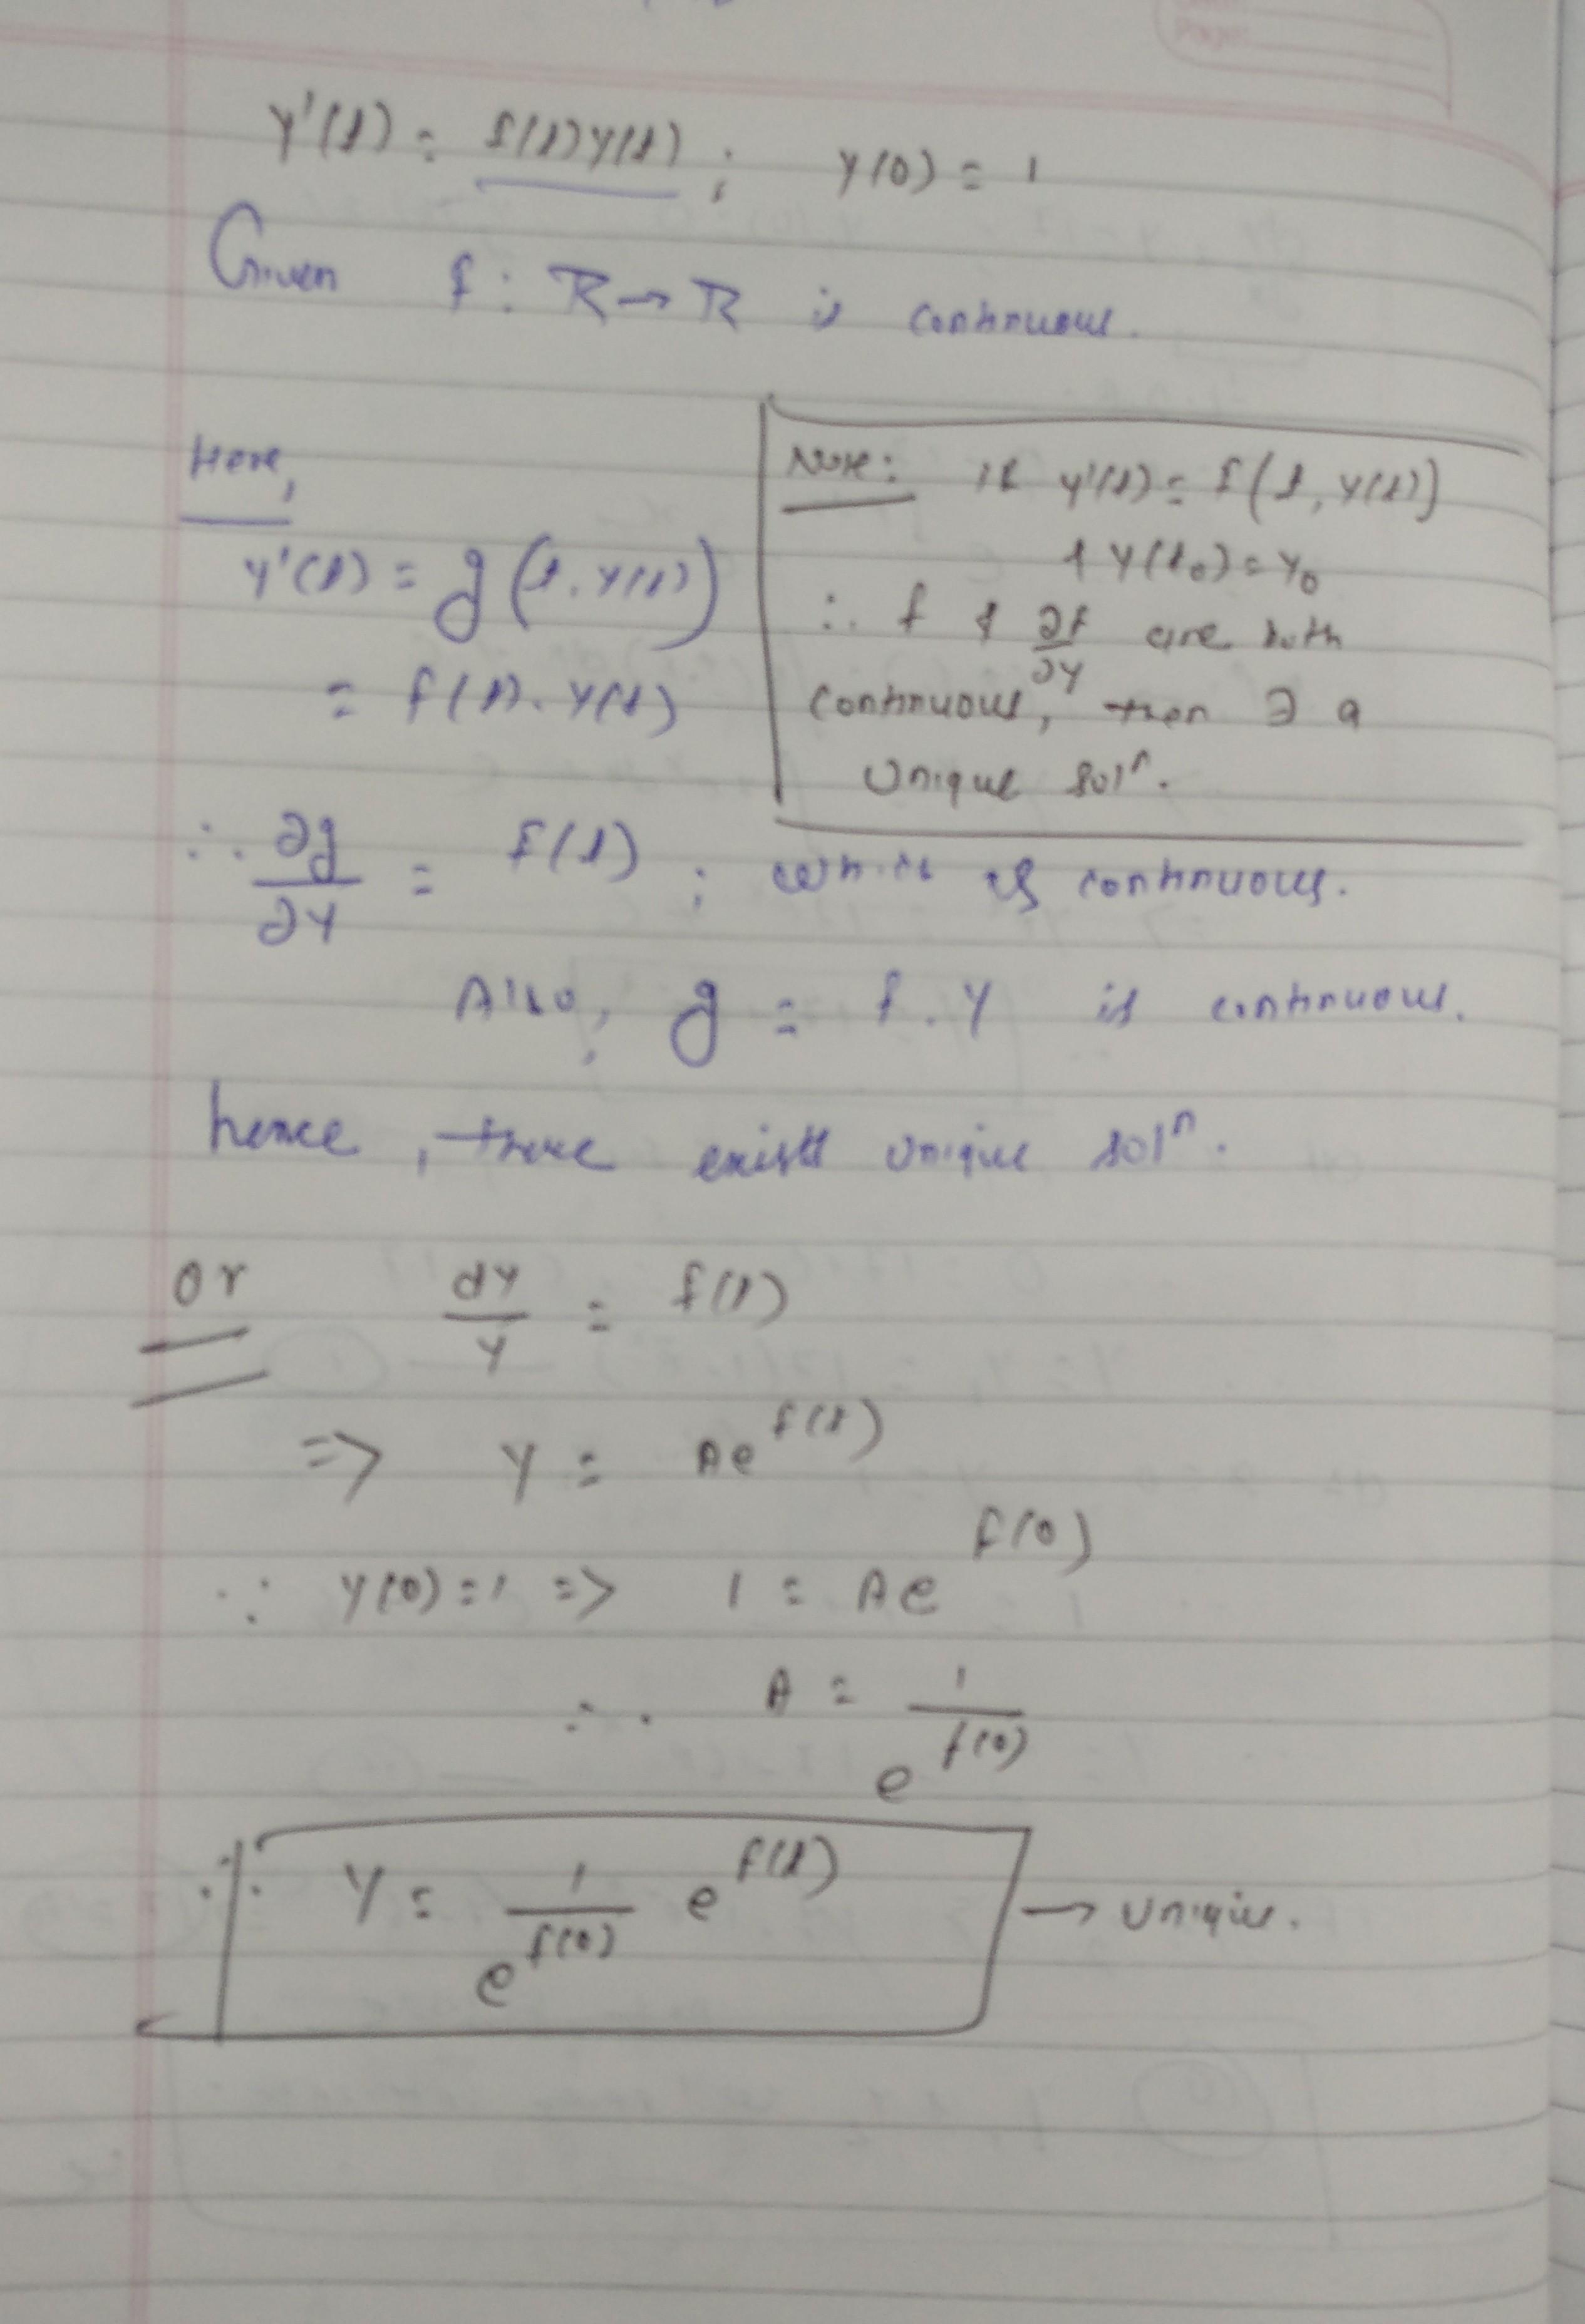 y'(t) = f(t)y(t) ; y(0) = 1
Given f : R → R is continuous.
Here,
y'(t) = g(t, y(t))
= f(t). y(t)
Note: if y'(t) = f(t, y(t))
& y(t₀) = y₀
∴ f & ∂f/∂y are both
continuous, then ∃ a
unique solⁿ.
∴ ∂g/∂y = f(t) ; which is continuous.
Also, g = f . y is continuous.
hence, there exists unique solⁿ.
or dy/y = f(t)
=> y = Ae^f(t)
∵ y(0) = 1 => 1 = Ae^f(0)
∴ A = 1/e^f(0)
∴ y = 1/e^f(0) e^f(t) → unique.